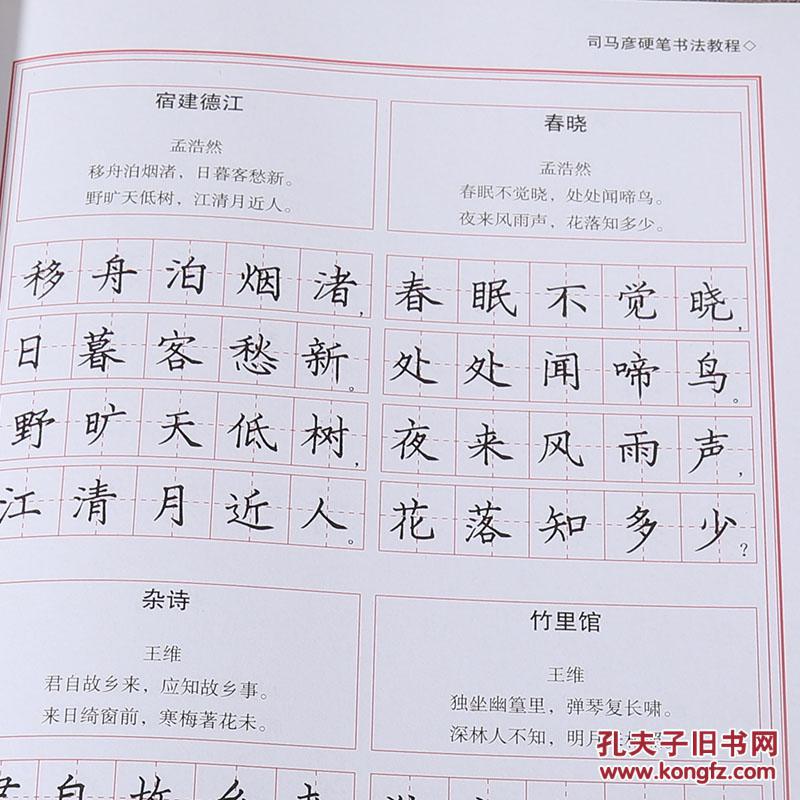 司马彦硬笔书法教程◇
宿建德江
孟浩然
移舟泊烟渚，日暮客愁新。
野旷天低树，江清月近人。
春晓
孟浩然
春眠不觉晓，处处闻啼鸟。
夜来风雨声，花落知多少。
移舟泊烟渚，
日暮客愁新。
野旷天低树，
江清月近人。
春眠不觉晓，
处处闻啼鸟。
夜来风雨声，
花落知多少？
杂诗
王维
君自故乡来，应知故乡事。
来日绮窗前，寒梅著花未。
竹里馆
王维
独坐幽篁里，弹琴复长啸。
深林人不知，明月
自故乡来
孔夫子旧书网
www.kongfz.com